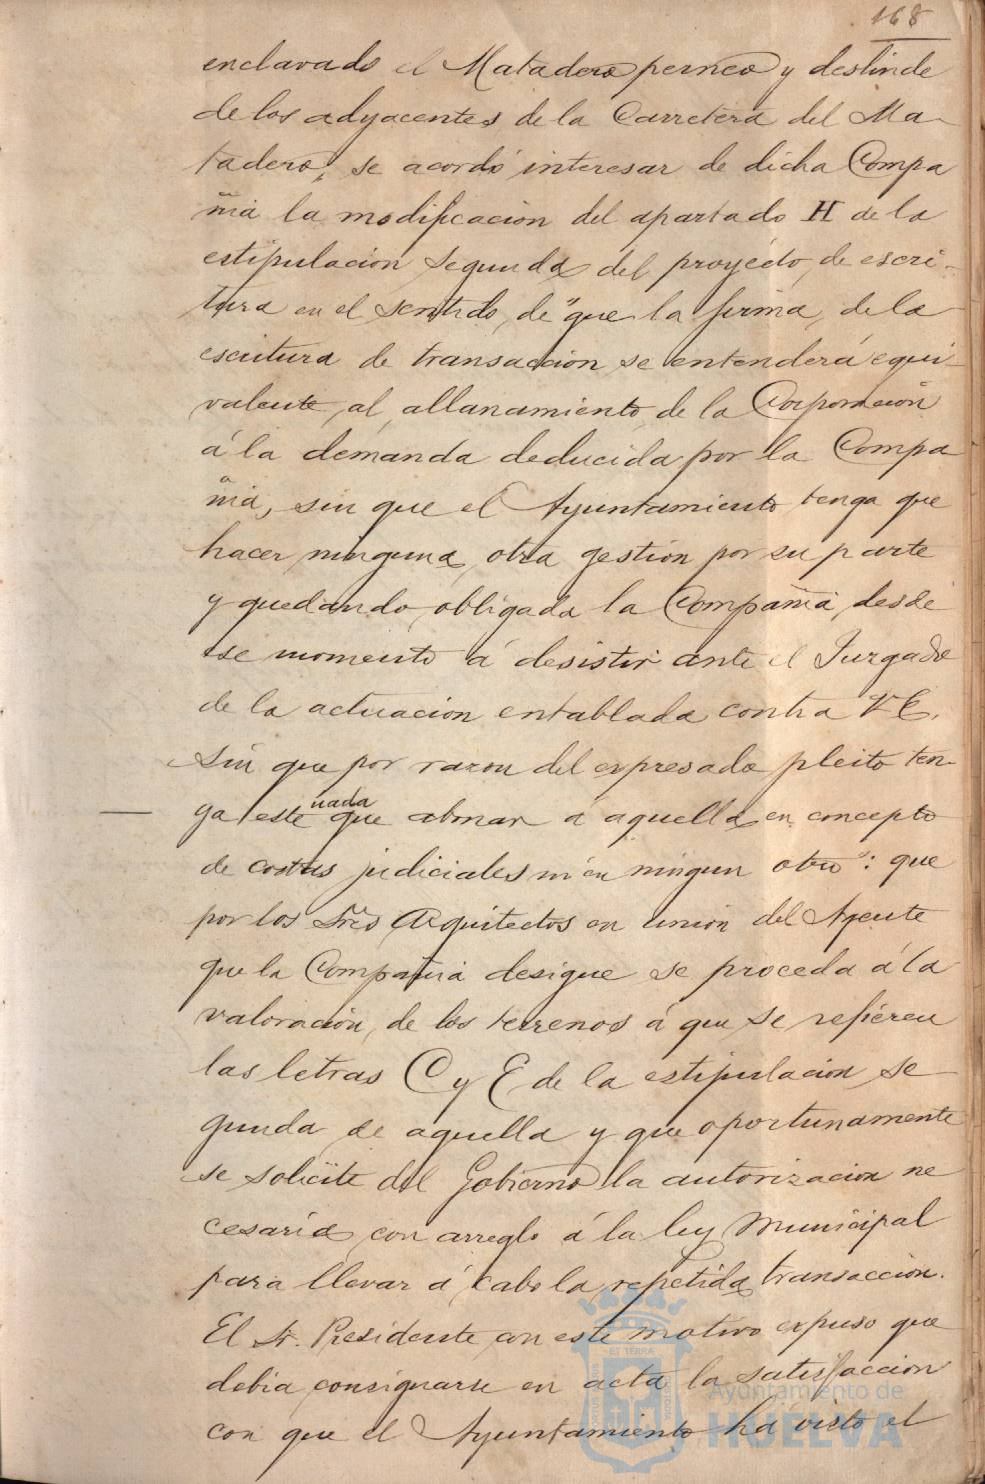 168
enclavado el Matadero perneo y deslinde
de los adyacentes de la Carretera del Ma-
tadero, se acordó interesar de dicha Compa
ñia la modificacion del apartado H de la
estipulacion segunda del proyecto de escri-
tura en el sentido de "que la firma de la
escritura de transaccion se entenderá equi-
valente al allanamiento de la Corporacion
á la demanda deducida por la Compa
ñia, sin que el Ayuntamiento tenga que
hacer ninguna otra gestion por su parte
y quedando obligada la Compañia, desde
ese momento á desistir ante el Juzgado
de la actuacion entablada contra V.E.
sin que por razon del expresado pleito ten-
ga este nada que abonar á aquella en concepto
de costas judiciales ni en ningun otro": que
por los Sres Arquitectos en union del Agente
que la Compañia desigue se proceda á la
valoracion de los terrenos á que se refieren
las letras C y E de la estipulacion se
gunda de aquella y que oportunamente
se solicite del Gobierno la autorizacion ne
cesaria con arreglo á la ley Municipal
para llevar á cabo la repetida transaccion.
El Sr. Presidente con este motivo expuso que
debia consignarse en acta la satisfaccion
con que el Ayuntamiento há visto el
ET TERRA
Ayuntamiento de
HUELVA